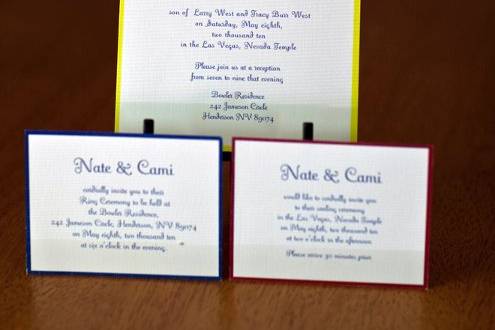 son of Larry West and Tracy Burr West
on Saturday, May eighth,
two thousand ten
in the Las Vegas, Nevada Temple
Please join us at a reception
from seven to nine that evening
Bowler Residence
242 Jameson Circle
Henderson NV 89074
Nate & Cami
cordially invite you to their
Ring Ceremony to be held at
the Bowler Residence,
242 Jameson Circle, Henderson, NV 89074
on May eighth, two thousand ten
at six o'clock in the evening
Nate & Cami
would like to cordially invite you
to their sealing ceremony
in the Las Vegas, Nevada Temple
on May eighth, two thousand ten
at two o'clock in the afternoon
Please arrive 30 minutes prior